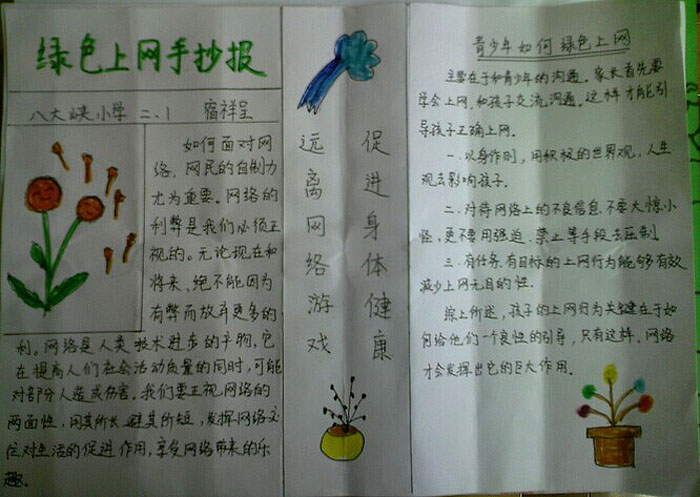 绿色上网手抄报
八大峡小学 二、1 宿祥呈
如何面对网
络，网民的自制力
尤为重要。网络的
利弊是我们必须正
视的。无论现在和
将来，绝不能因为
有弊而放弃更多的
利。网络是人类技术进步的产物，它
在提高人们社会活动质量的同时，可能
对部分人造成伤害。我们要正视网络的
两面性，用其所长，避其所短，发挥网络
对生活的促进作用，享受网络带来的乐
趣。
促进身体健康
远离网络游戏
青少年如何绿色上网
主要在于和青少年的沟通。家长首先要
学会上网，和孩子交流，沟通。这样才能引
导孩子正确上网。
一.以身作则，用积极的世界观，人生
观去影响孩子。
二.对待网络上的不良信息，不要大惊小
怪，更不要用强迫、禁止等手段去压制
三.有任务，有目标的上网行为能够有效
减少上网无目的性.
综上所述，孩子的上网行为关键在于如
何给他们一个良性的引导，只有这样，网络
才会发挥出它的巨大作用。